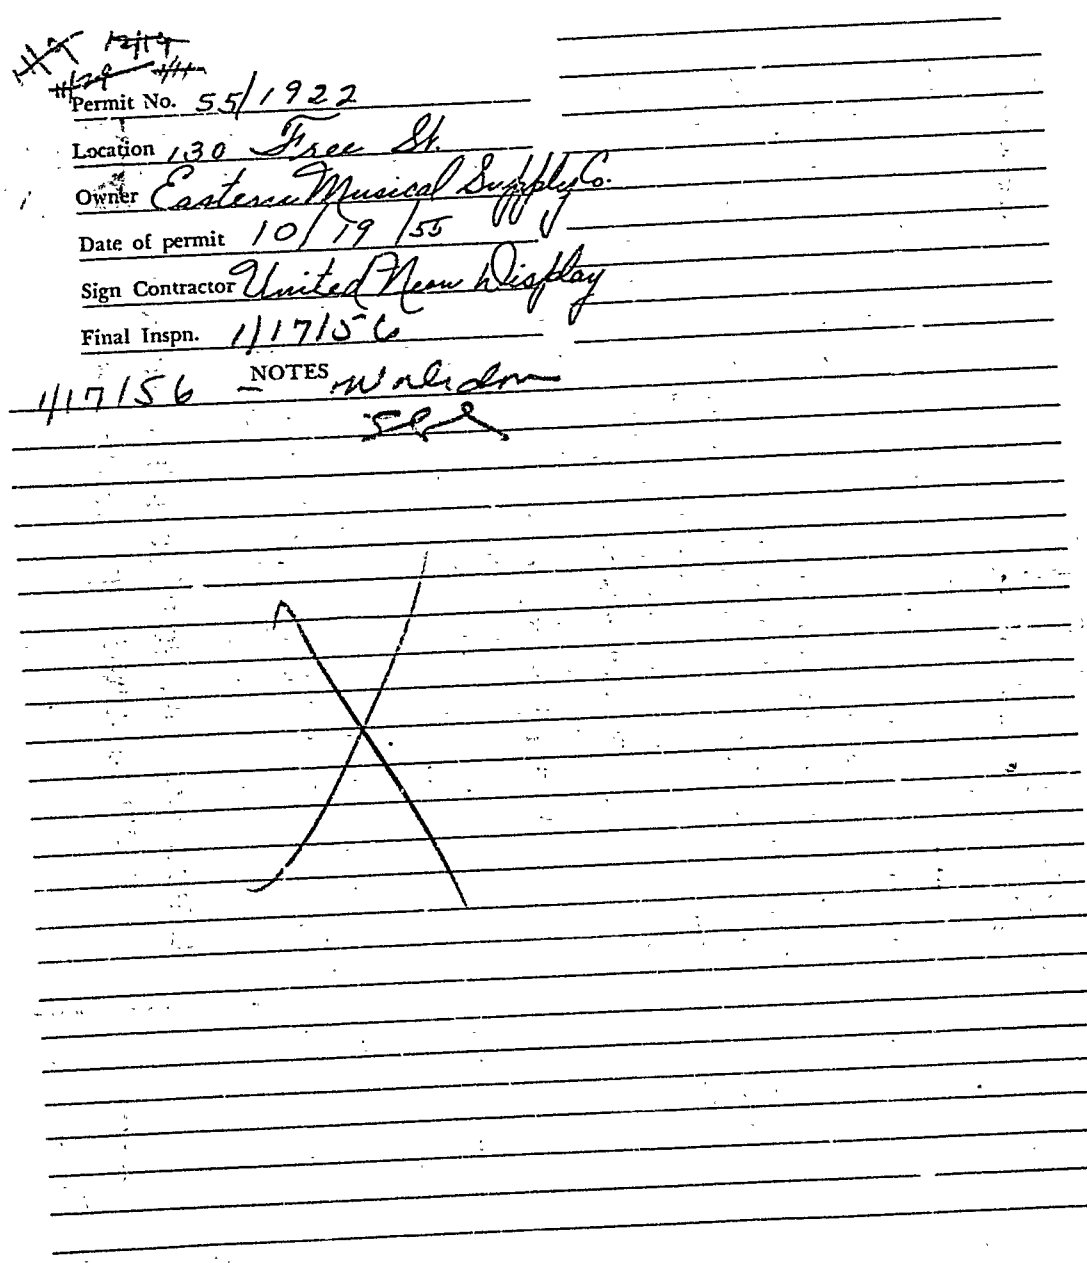 11/7 12/19
11/29 1/11
Permit No. 55/1922
Location 130 Free St.
Owner Eastern Musical Supply Co.
Date of permit 10/19/55
Sign Contractor United Neon Display
Final Inspn. 1/17/56
NOTES
1/17/56 - Work done